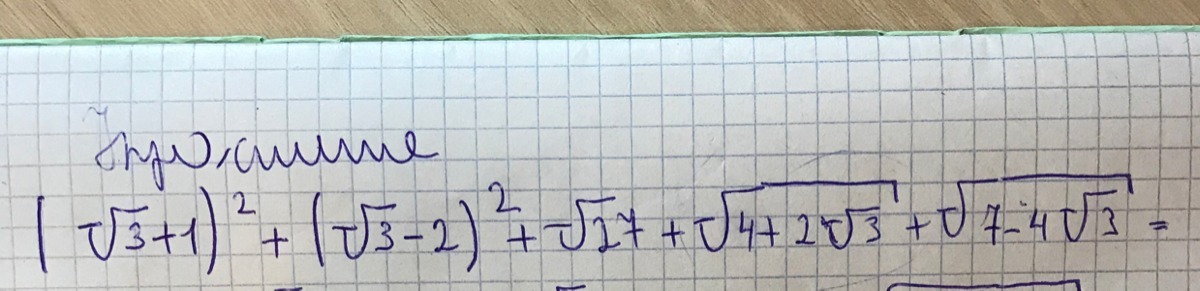 Упростите
(√3+1)² + (√3-2)² + √27 + √(4+2√3) + √(7-4√3) =